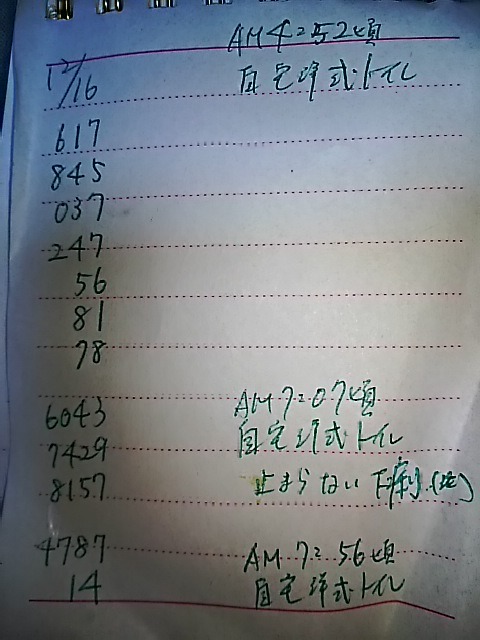 AM4:52頃
12/16 自宅洋式トイレ
617
845
037
247
56
81
78
6043 AM7:07頃
7429 自宅洋式トイレ
8157 止まらない下痢
4787 AM 7:56頃
14 自宅洋式トイレ